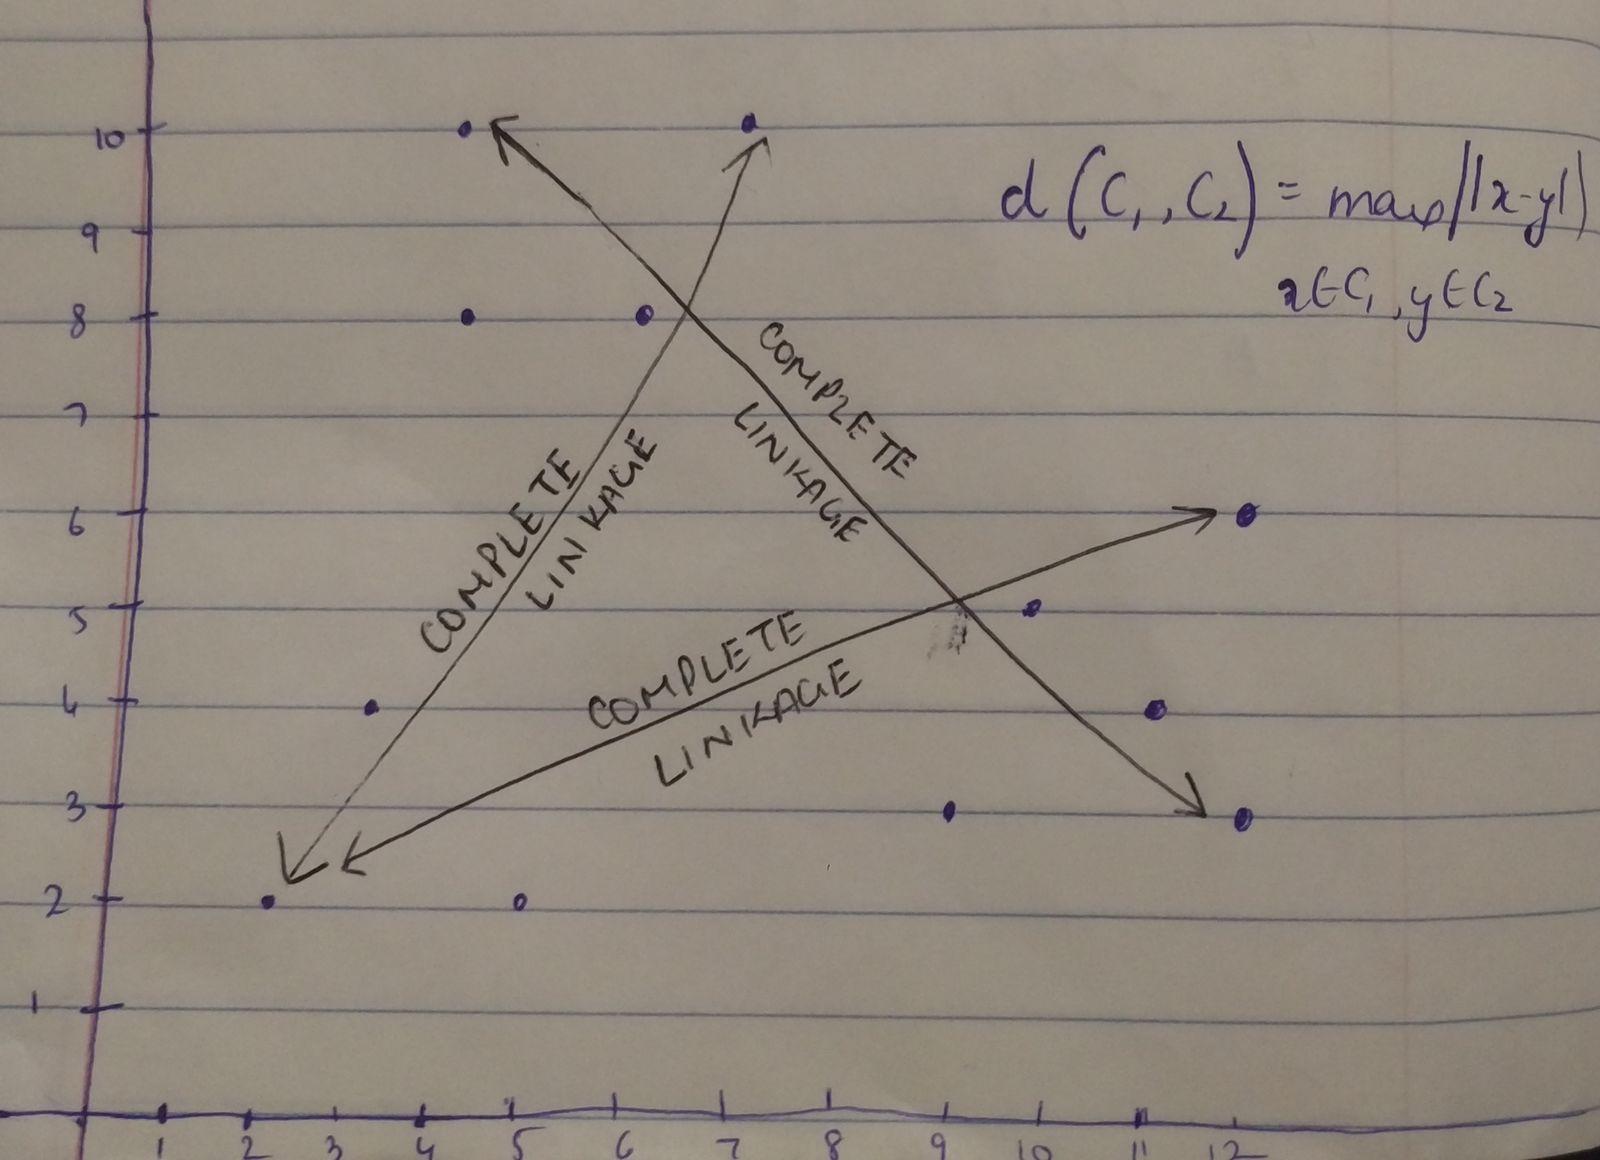 10
9
8
7
6
5
4
3
2
1
1 2 3 4 5 6 7 8 9 10 11 12
d (C1, C2) = max(||x-y||)
x∈C1, y∈C2
COMPLETE
LINKAGE
COMPLETE
LINKAGE
COMPLETE
LINKAGE